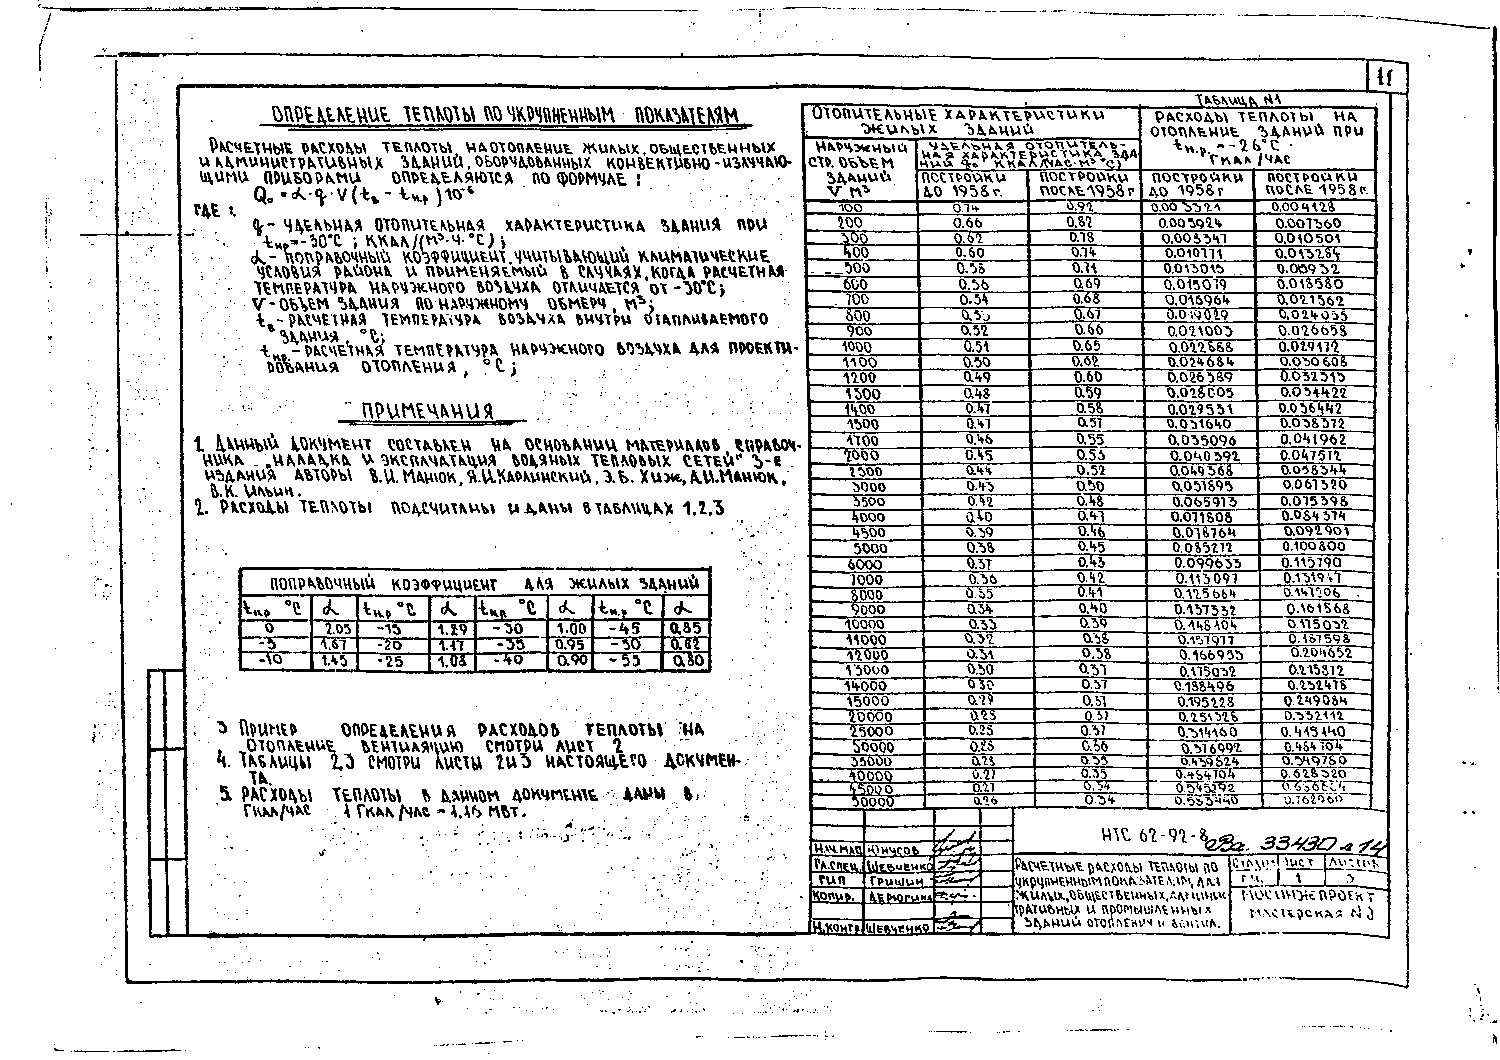 11
ОПРЕДЕЛЕНИЕ ТЕПЛОТЫ ПО УКРУПНЕННЫМ ПОКАЗАТЕЛЯМ
РАСЧЕТНЫЕ РАСХОДЫ ТЕПЛОТЫ НА ОТОПЛЕНИЕ ЖИЛЫХ, ОБЩЕСТВЕННЫХ
И АДМИНИСТРАТИВНЫХ ЗДАНИЙ, ОБОРУДОВАННЫХ КОНВЕКТИВНО-ИЗЛУЧАЮ-
ЩИМИ ПРИБОРАМИ ОПРЕДЕЛЯЮТСЯ ПО ФОРМУЛЕ:
Qо = α·q·V(tв - tн.р)10⁻⁶
ГДЕ:
q - УДЕЛЬНАЯ ОТОПИТЕЛЬНАЯ ХАРАКТЕРИСТИКА ЗДАНИЯ ПРИ
tнр=-30°С; ККАЛ/(м³·ч·°С);
α - ПОПРАВОЧНЫЙ КОЭФФИЦИЕНТ, УЧИТЫВАЮЩИЙ КЛИМАТИЧЕСКИЕ
УСЛОВИЯ РАЙОНА И ПРИМЕНЯЕМЫЙ В СЛУЧАЯХ, КОГДА РАСЧЕТНАЯ
ТЕМПЕРАТУРА НАРУЖНОГО ВОЗДУХА ОТЛИЧАЕТСЯ ОТ -30°С;
V - ОБЪЕМ ЗДАНИЯ ПО НАРУЖНОМУ ОБМЕРУ, м³;
tв - РАСЧЕТНАЯ ТЕМПЕРАТУРА ВОЗДУХА ВНУТРИ ОТАПЛИВАЕМОГО
ЗДАНИЯ, °С;
tнр - РАСЧЕТНАЯ ТЕМПЕРАТУРА НАРУЖНОГО ВОЗДУХА ДЛЯ ПРОЕКТИ-
РОВАНИЯ ОТОПЛЕНИЯ, °С;
ПРИМЕЧАНИЯ
1. ДАННЫЙ ДОКУМЕНТ СОСТАВЛЕН НА ОСНОВАНИИ МАТЕРИАЛОВ СПРАВОЧ-
НИКА „НАЛАДКА И ЭКСПЛУАТАЦИЯ ВОДЯНЫХ ТЕПЛОВЫХ СЕТЕЙ" 3-е
ИЗДАНИЯ АВТОРЫ В.И. МАНЮК, Я.И. КАПЛИНСКИЙ, Э.Б. ХИЖ, А.И. МАНЮК,
В.К. ИЛЬИН.
2. РАСХОДЫ ТЕПЛОТЫ ПОДСЧИТАНЫ И ДАНЫ В ТАБЛИЦАХ 1.2.3
ПОПРАВОЧНЫЙ КОЭФФИЦИЕНТ ДЛЯ ЖИЛЫХ ЗДАНИЙ
tн.р °С α tн.р °С α tн.р °С α tн.р °С α
0 2.05 -15 1.29 -30 1.00 -45 0.85
-5 1.67 -20 1.17 -35 0.95 -50 0.82
-10 1.45 -25 1.08 -40 0.90 -55 0.80
3 ПРИМЕР ОПРЕДЕЛЕНИЯ РАСХОДОВ ТЕПЛОТЫ НА
ОТОПЛЕНИЕ ВЕНТИЛЯЦИЮ СМОТРИ ЛИСТ 2
4. ТАБЛИЦЫ 2,3 СМОТРИ ЛИСТЫ 2 И 3 НАСТОЯЩЕГО ДОКУМЕН-
ТА.
5. РАСХОДЫ ТЕПЛОТЫ В ДАННОМ ДОКУМЕНТЕ ДАНЫ В
ГКАЛ/ЧАС 1 ГКАЛ/ЧАС = 1.16 МВТ.
ТАБЛИЦА N1
ОТОПИТЕЛЬНЫЕ ХАРАКТЕРИСТИКИ
ЖИЛЫХ ЗДАНИЙ
РАСХОДЫ ТЕПЛОТЫ НА
ОТОПЛЕНИЕ ЗДАНИЙ ПРИ
tн.р. = -26°С
ГКАЛ/ЧАС
НАРУЖНЫЙ
СТР. ОБЪЕМ
ЗДАНИЙ
V м³
УДЕЛЬНАЯ ОТОПИТЕЛЬ-
НАЯ ХАРАКТЕРИСТИКА ЗДА
НИЙ qо ККАЛ/ЧАС м³ °С)
ПОСТРОЙКИ ДО 1958 г.
ПОСТРОЙКИ ПОСЛЕ 1958 г
ПОСТРОЙКИ ДО 1958 г
ПОСТРОЙКИ ПОСЛЕ 1958 г.
100 0.74 0.92 0.003321 0.004128
200 0.66 0.82 0.005924 0.007360
300 0.62 0.78 0.008347 0.010501
400 0.60 0.74 0.010771 0.013284
500 0.58 0.71 0.013015 0.015932
600 0.56 0.69 0.015079 0.018580
700 0.54 0.68 0.016964 0.021362
800 0.53 0.67 0.019029 0.024055
900 0.52 0.66 0.021003 0.026658
1000 0.51 0.65 0.022888 0.029172
1100 0.50 0.62 0.024684 0.030608
1200 0.49 0.60 0.026389 0.032313
1300 0.48 0.59 0.028005 0.034422
1400 0.47 0.58 0.029531 0.036442
1500 0.47 0.57 0.031640 0.038372
1700 0.46 0.55 0.035096 0.041962
2000 0.45 0.53 0.040392 0.047572
2500 0.44 0.52 0.049368 0.058344
3000 0.43 0.50 0.057895 0.067320
3500 0.42 0.48 0.065973 0.075398
4000 0.40 0.47 0.071808 0.084374
4500 0.39 0.46 0.078764 0.092901
5000 0.38 0.45 0.085272 0.100800
6000 0.37 0.43 0.099633 0.115790
7000 0.36 0.42 0.113097 0.131947
8000 0.35 0.41 0.125664 0.147206
9000 0.34 0.40 0.137332 0.161568
10000 0.33 0.39 0.148104 0.175032
11000 0.32 0.38 0.157977 0.187598
12000 0.31 0.38 0.166953 0.204652
13000 0.30 0.37 0.175032 0.215872
14000 0.30 0.37 0.188496 0.232478
15000 0.29 0.37 0.195228 0.249084
20000 0.28 0.37 0.251328 0.332112
25000 0.28 0.37 0.314160 0.415140
30000 0.28 0.36 0.376992 0.484704
35000 0.28 0.35 0.439824 0.549780
40000 0.27 0.35 0.484704 0.628320
45000 0.27 0.34 0.545292
50000 0.26 0.34 0.583440 0.762960
НТС 62-92-8
33430 л 14
НАЧ.МАС ЮНУСОВ
ГЛ.СПЕЦ. ШЕВЧЕНКО
ГИП ГРИШИН
КОПИР. ДЕРЮГИНА
Н.КОНТР ШЕВЧЕНКО
РАСЧЕТНЫЕ РАСХОДЫ ТЕПЛОТЫ ПО
УКРУПНЕННЫМ ПОКАЗАТЕЛЯМ, ДЛЯ
ЖИЛЫХ, ОБЩЕСТВЕННЫХ, АДМИНИС
ТРАТИВНЫХ И ПРОМЫШЛЕННЫХ
ЗДАНИЙ ОТОПЛЕНИЯ И ВЕНТИЛ.
СТАДИЯ ЛИСТ ЛИСТОВ
1 3
МОСИНЖПРОЕКТ
МАСТЕРСКАЯ N